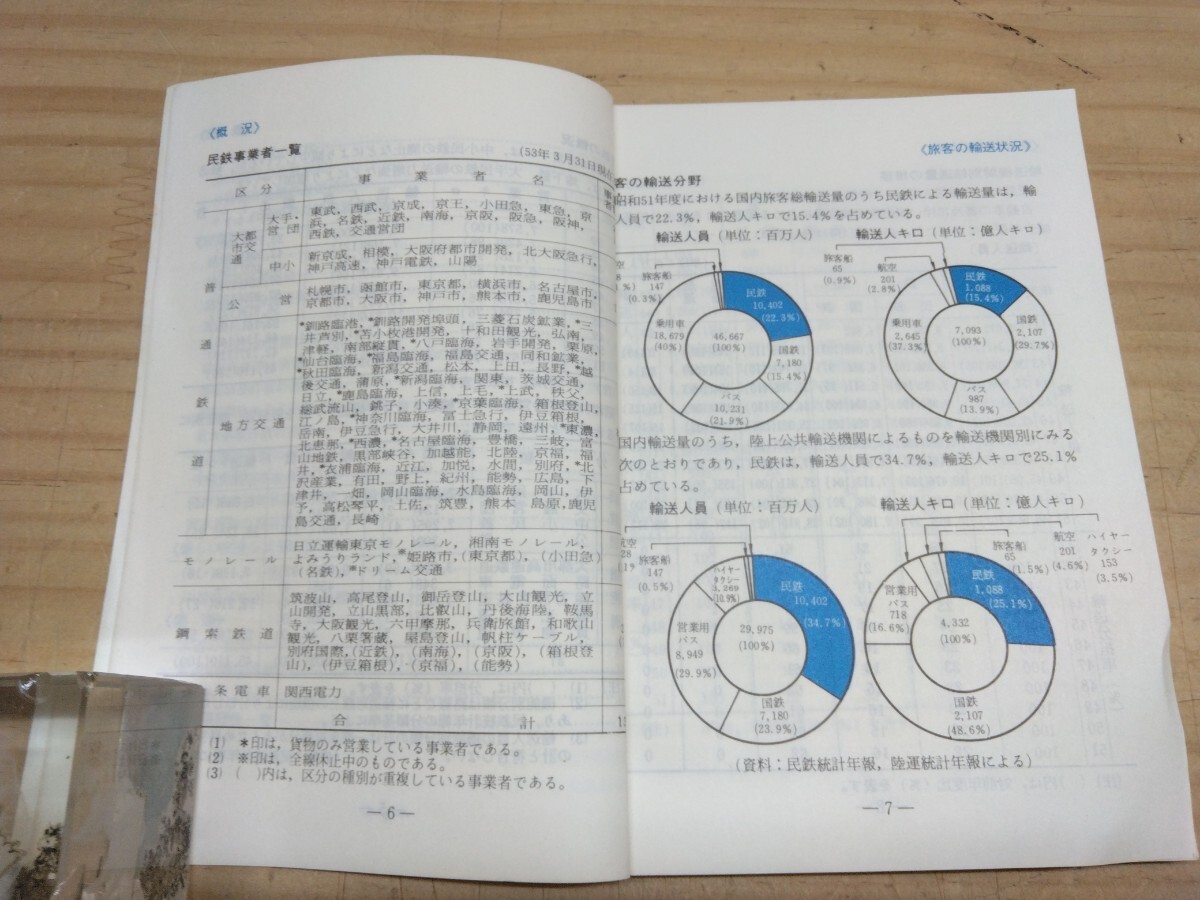 〈概 況〉
民鉄事業者一覧
(53年3月31日現
区 分
事 業 者 名
普通鉄道
大都市交通
大手・営団
東武，西武，京成，京王，小田急，東急，京
浜，名鉄，近鉄，南海，京阪，阪急，阪神，
西鉄，交通営団
中小
新京成，相模，大阪府都市開発，北大阪急行，
神戸高速，神戸電鉄，山陽
公 営
札幌市，函館市，東京都，横浜市，名古屋市，
京都市，大阪市，神戸市，熊本市，鹿児島市
地方交通
*釧路臨港，*釧路開発埠頭，三菱石炭鉱業，*三
井芦別，*苫小枚港開発，十和田観光，弘南，
津軽，南部縦貫，*八戸臨海，岩手開発，栗原，
*仙台臨海，*福島臨海，福島交通，同和鉱業，
*秋田臨海，新潟交通，松本，上田，長野，*越
後交通，蒲原，*新潟臨海，関東，茨城交通，
日立，*鹿島臨海，上信，上毛，*上武，秩父，
総武流山，銚子，小湊，*京葉臨海，箱根登山，
江ノ島，*神奈川臨海，富士急行，伊豆箱根，
岳南，伊豆急行，大井川，静岡，遠州，*東濃，
北恵那，*西濃，*名古屋臨海，豊橋，三岐，富
山地鉄，黒部峡谷，加越能，北陸，京福，福
井，*衣浦臨海，近江，加悦，水間，別府，*北
沢産業，有田，野上，紀州，能勢，広島，下
津井，一畑，岡山臨海，水島臨海，岡山，伊
予，高松琴平，土佐，筑豊，熊本 島原，鹿児
島交通，長崎
モノレール
日立運輸東京モノレール，湘南モノレール，
よみうりランド，※姫路市，(東京都)，(小田急)
(名鉄)，※ドリーム交通
鋼索鉄道
筑波山，高尾登山，御岳登山，大山観光，立
山開発，立山黒部，比叡山，丹後海陸，鞍馬
寺，大阪観光，六甲摩耶，兵衛旅館，和歌山
観光，八栗箸蔵，屋島登山，帆柱ケーブル，
別府国際，(近鉄)，(南海)，(京阪)，(箱根登
山)，(伊豆箱根)，(京福)，(能勢)
条電車
関西電力
合 計
(1) *印は，貨物のみ営業している事業者である。
(2) ※印は，全線休止中のものである。
(3) ( )内は，区分の種別が重複している事業者である。
—6—
〈旅客の輸送状況〉
客の輸送分野
昭和51年度における国内旅客総輸送量のうち民鉄による輸送量は，輸
人員で22.3%，輸送人キロで15.4%を占めている。
輸送人員 (単位：百万人)
旅客船
147
(0.3%)
民鉄
10,402
(22.3%)
乗用車
18,679
(40%)
46,667
(100%)
国鉄
7,180
(15.4%)
バス
10,231
(21.9%)
輸送人キロ (単位：億人キロ)
旅客船
65
(0.9%)
航空
201
(2.8%)
民鉄
1,088
(15.4%)
乗用車
2,645
(37.3%)
7,093
(100%)
国鉄
2,107
(29.7%)
バス
987
(13.9%)
国内輸送量のうち，陸上公共輸送機関によるものを輸送機関別にみる
次のとおりであり，民鉄は，輸送人員で34.7%，輸送人キロで25.1%
占めている。
輸送人員 (単位：百万人)
旅客船
147
(0.5%)
ハイヤー
タクシー
3,269
(10.9%)
民鉄
10,402
(34.7%)
営業用
バス
8,949
(29.9%)
29,975
(100%)
国鉄
7,180
(23.9%)
輸送人キロ (単位：億人キロ)
旅客船
65
(1.5%)
航空
201
(4.6%)
ハイヤー
タクシー
153
(3.5%)
民鉄
1,088
(25.1%)
営業用
バス
718
(16.6%)
4,332
(100%)
国鉄
2,107
(48.6%)
(資料：民鉄統計年報，陸運統計年報による)
—7—